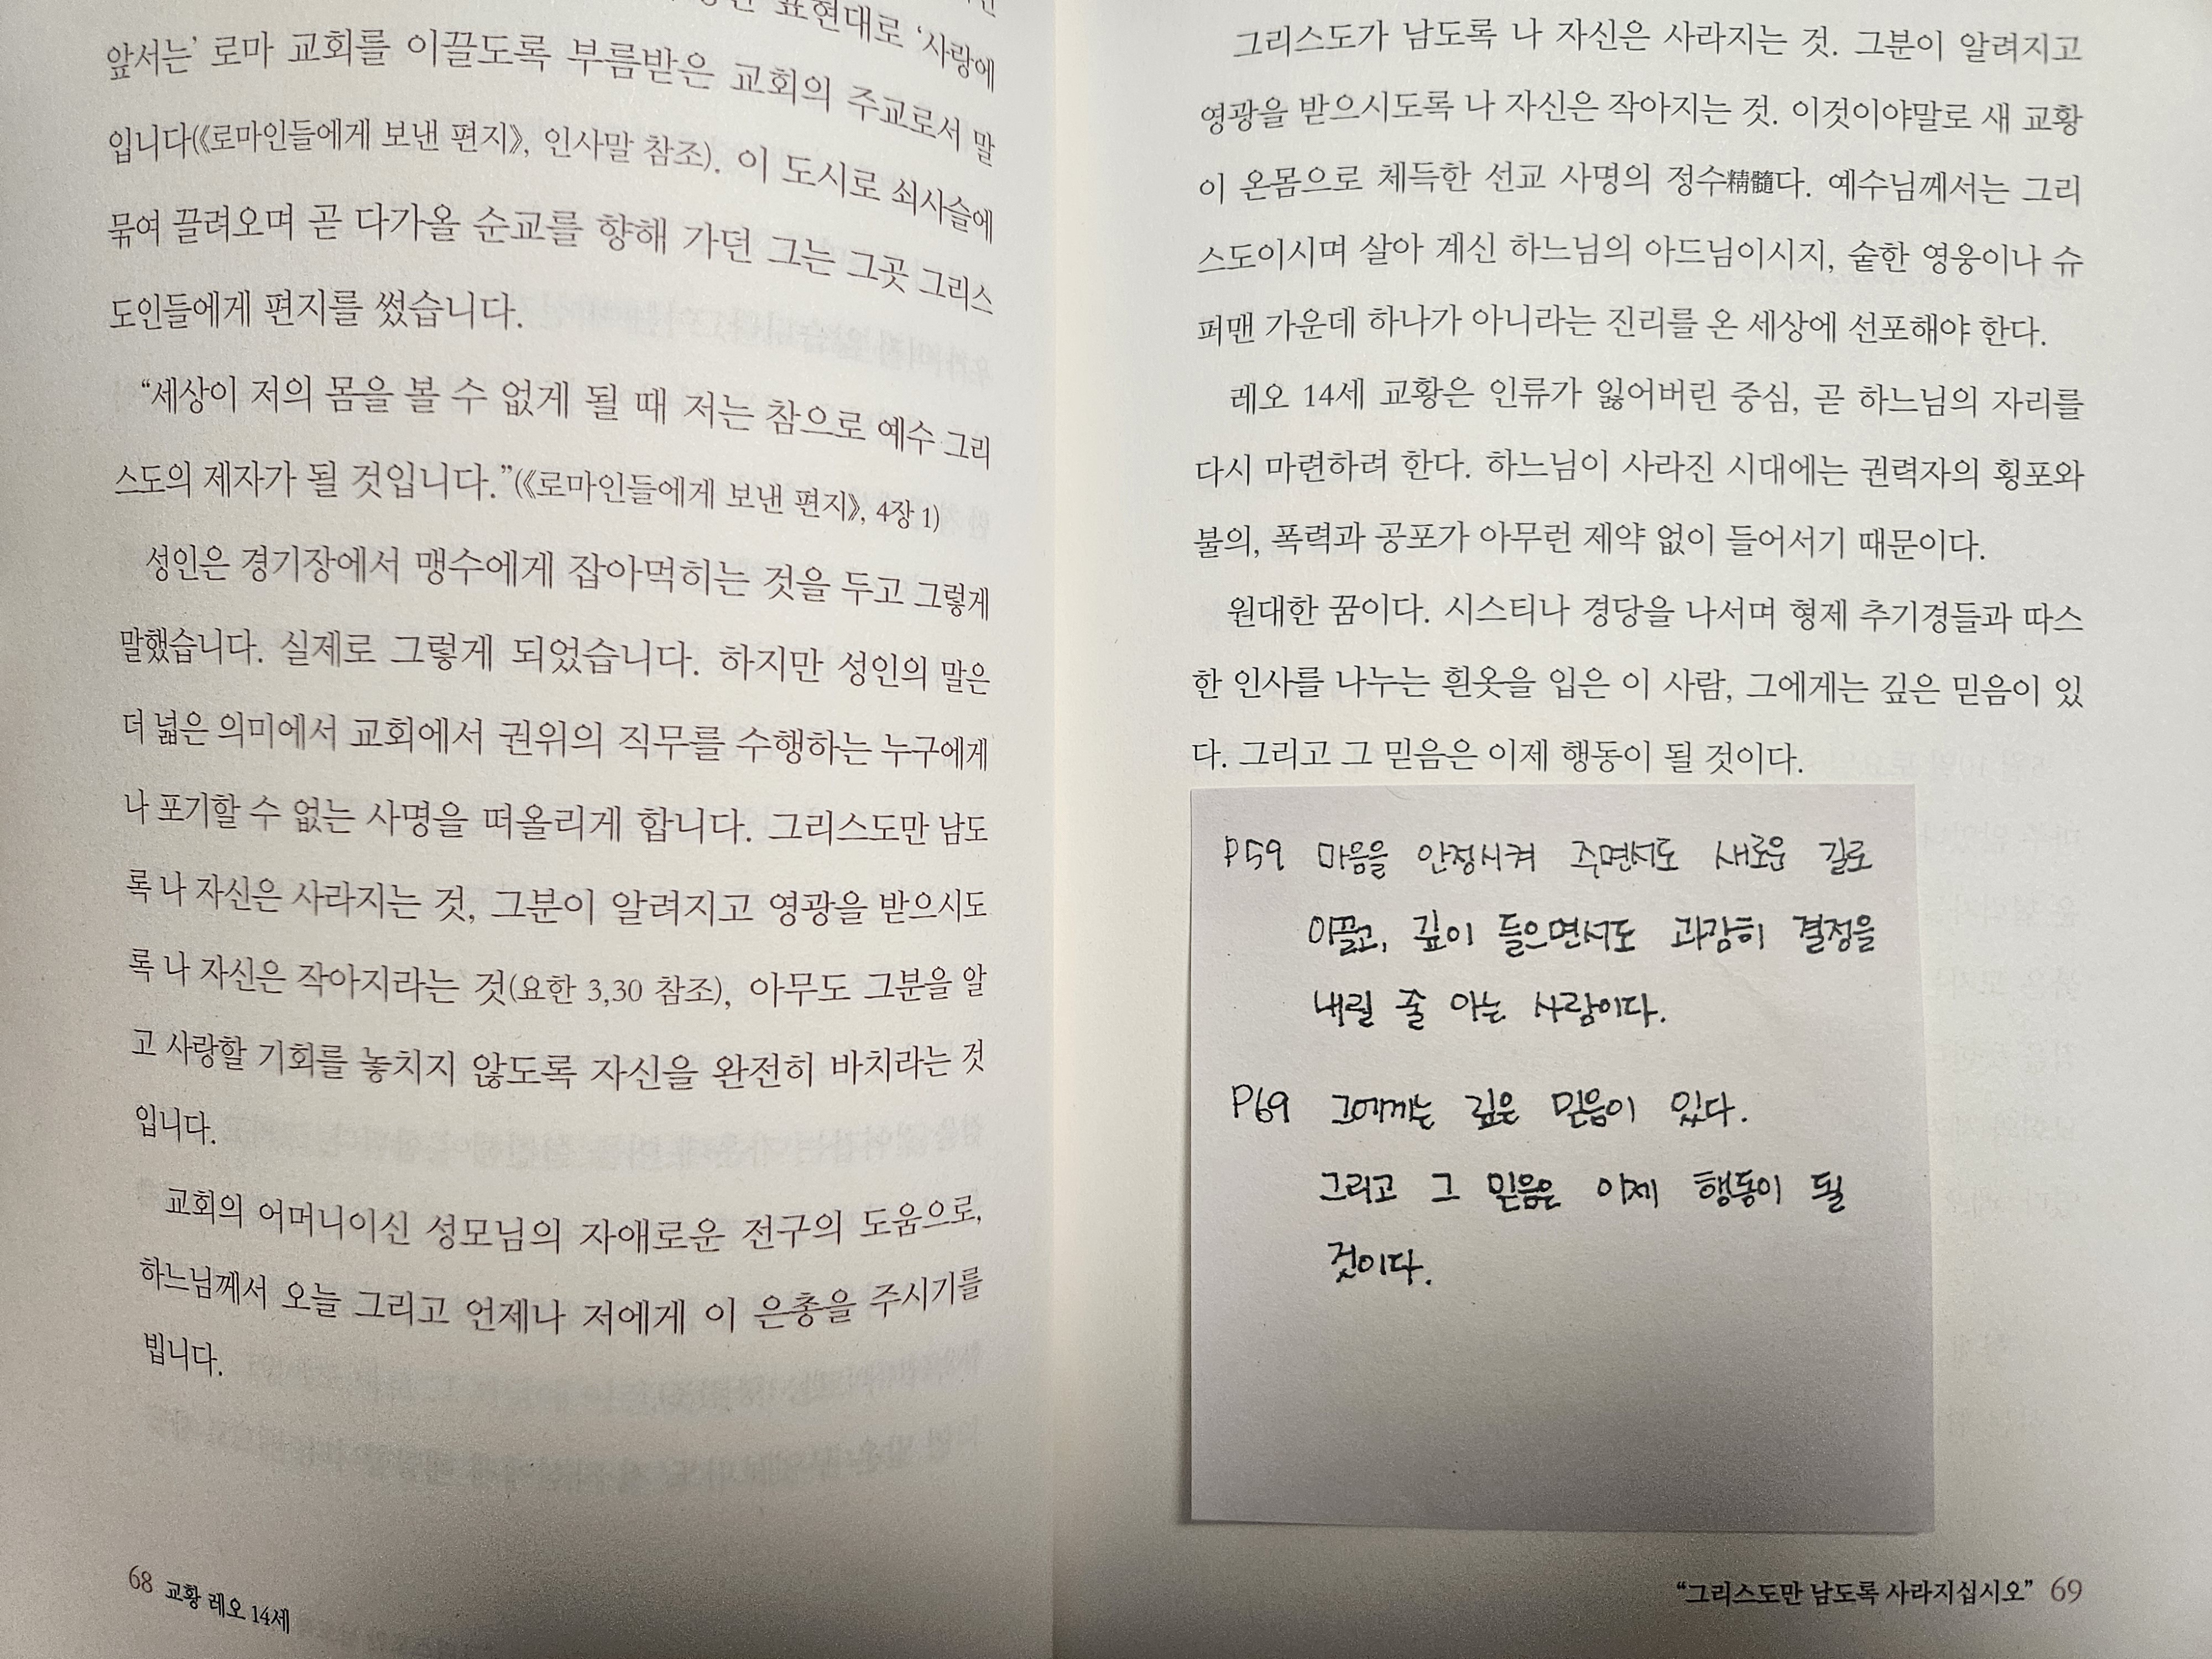 표현대로 ‘사랑에
앞서는’ 로마 교회를 이끌도록 부름받은 교회의 주교로서 말
입니다(《로마인들에게 보낸 편지》, 인사말 참조). 이 도시로 쇠사슬에
묶여 끌려오며 곧 다가올 순교를 향해 가던 그는 그곳 그리스
도인들에게 편지를 썼습니다.
“세상이 저의 몸을 볼 수 없게 될 때 저는 참으로 예수 그리
스도의 제자가 될 것입니다.”(《로마인들에게 보낸 편지》, 4장 1)
성인은 경기장에서 맹수에게 잡아먹히는 것을 두고 그렇게
말했습니다. 실제로 그렇게 되었습니다. 하지만 성인의 말은
더 넓은 의미에서 교회에서 권위의 직무를 수행하는 누구에게
나 포기할 수 없는 사명을 떠올리게 합니다. 그리스도만 남도
록 나 자신은 사라지는 것, 그분이 알려지고 영광을 받으시도
록 나 자신은 작아지라는 것(요한 3,30 참조), 아무도 그분을 알
고 사랑할 기회를 놓치지 않도록 자신을 완전히 바치라는 것
입니다.
교회의 어머니이신 성모님의 자애로운 전구의 도움으로,
하느님께서 오늘 그리고 언제나 저에게 이 은총을 주시기를
빕니다.
68 교황 레오 14세
그리스도가 남도록 나 자신은 사라지는 것. 그분이 알려지고
영광을 받으시도록 나 자신은 작아지는 것. 이것이야말로 새 교황
이 온몸으로 체득한 선교 사명의 정수精髓다. 예수님께서는 그리
스도이시며 살아 계신 하느님의 아드님이시지, 숱한 영웅이나 슈
퍼맨 가운데 하나가 아니라는 진리를 온 세상에 선포해야 한다.
레오 14세 교황은 인류가 잃어버린 중심, 곧 하느님의 자리를
다시 마련하려 한다. 하느님이 사라진 시대에는 권력자의 횡포와
불의, 폭력과 공포가 아무런 제약 없이 들어서기 때문이다.
원대한 꿈이다. 시스티나 경당을 나서며 형제 추기경들과 따스
한 인사를 나누는 흰옷을 입은 이 사람, 그에게는 깊은 믿음이 있
다. 그리고 그 믿음은 이제 행동이 될 것이다.
P59 마음을 안정시켜 주면서도 새로운 길로
이끌고, 깊이 들으면서도 과감히 결정을
내릴 줄 아는 사람이다.
P69 그에게는 깊은 믿음이 있다.
그리고 그 믿음은 이제 행동이 될
것이다.
“그리스도만 남도록 사라지십시오” 69